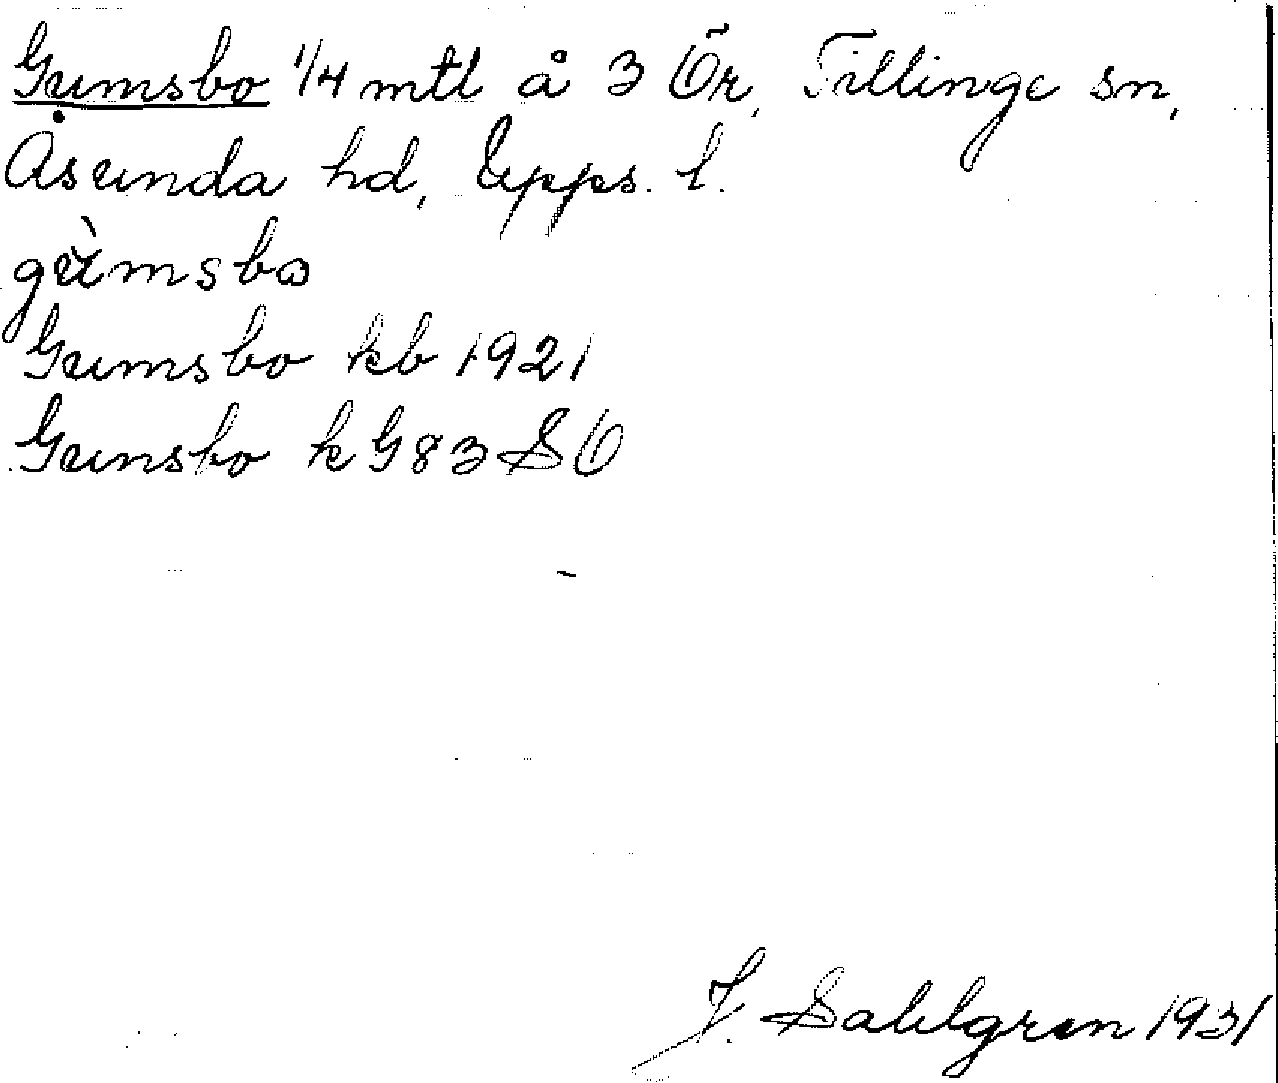 Gumsbo 1/4 mtl å 3 Ör, Tillinge sn,
Åsunda hd, Upps. l.
gùmsbo
Gumsbo kb 1921
Gunsbo k G83 SO
J. Sahlgren 1931